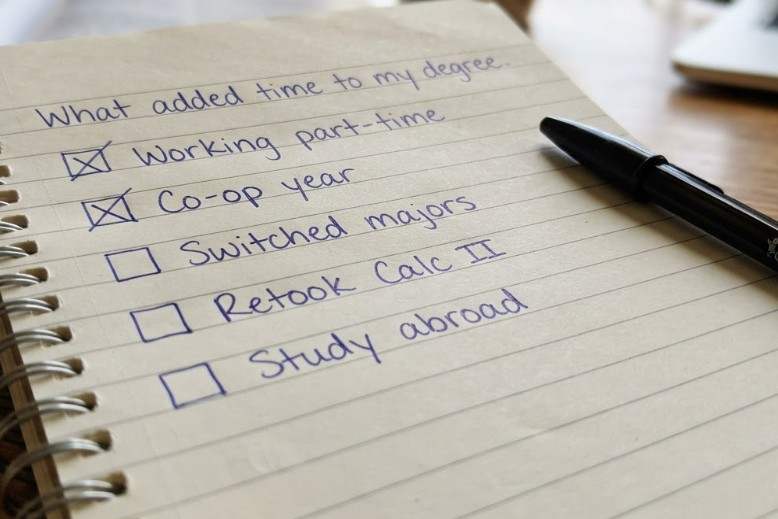 What added time to my degree.
☒ Working part-time
☒ Co-op year
☐ Switched majors
☐ Retook Calc II
☐ Study abroad